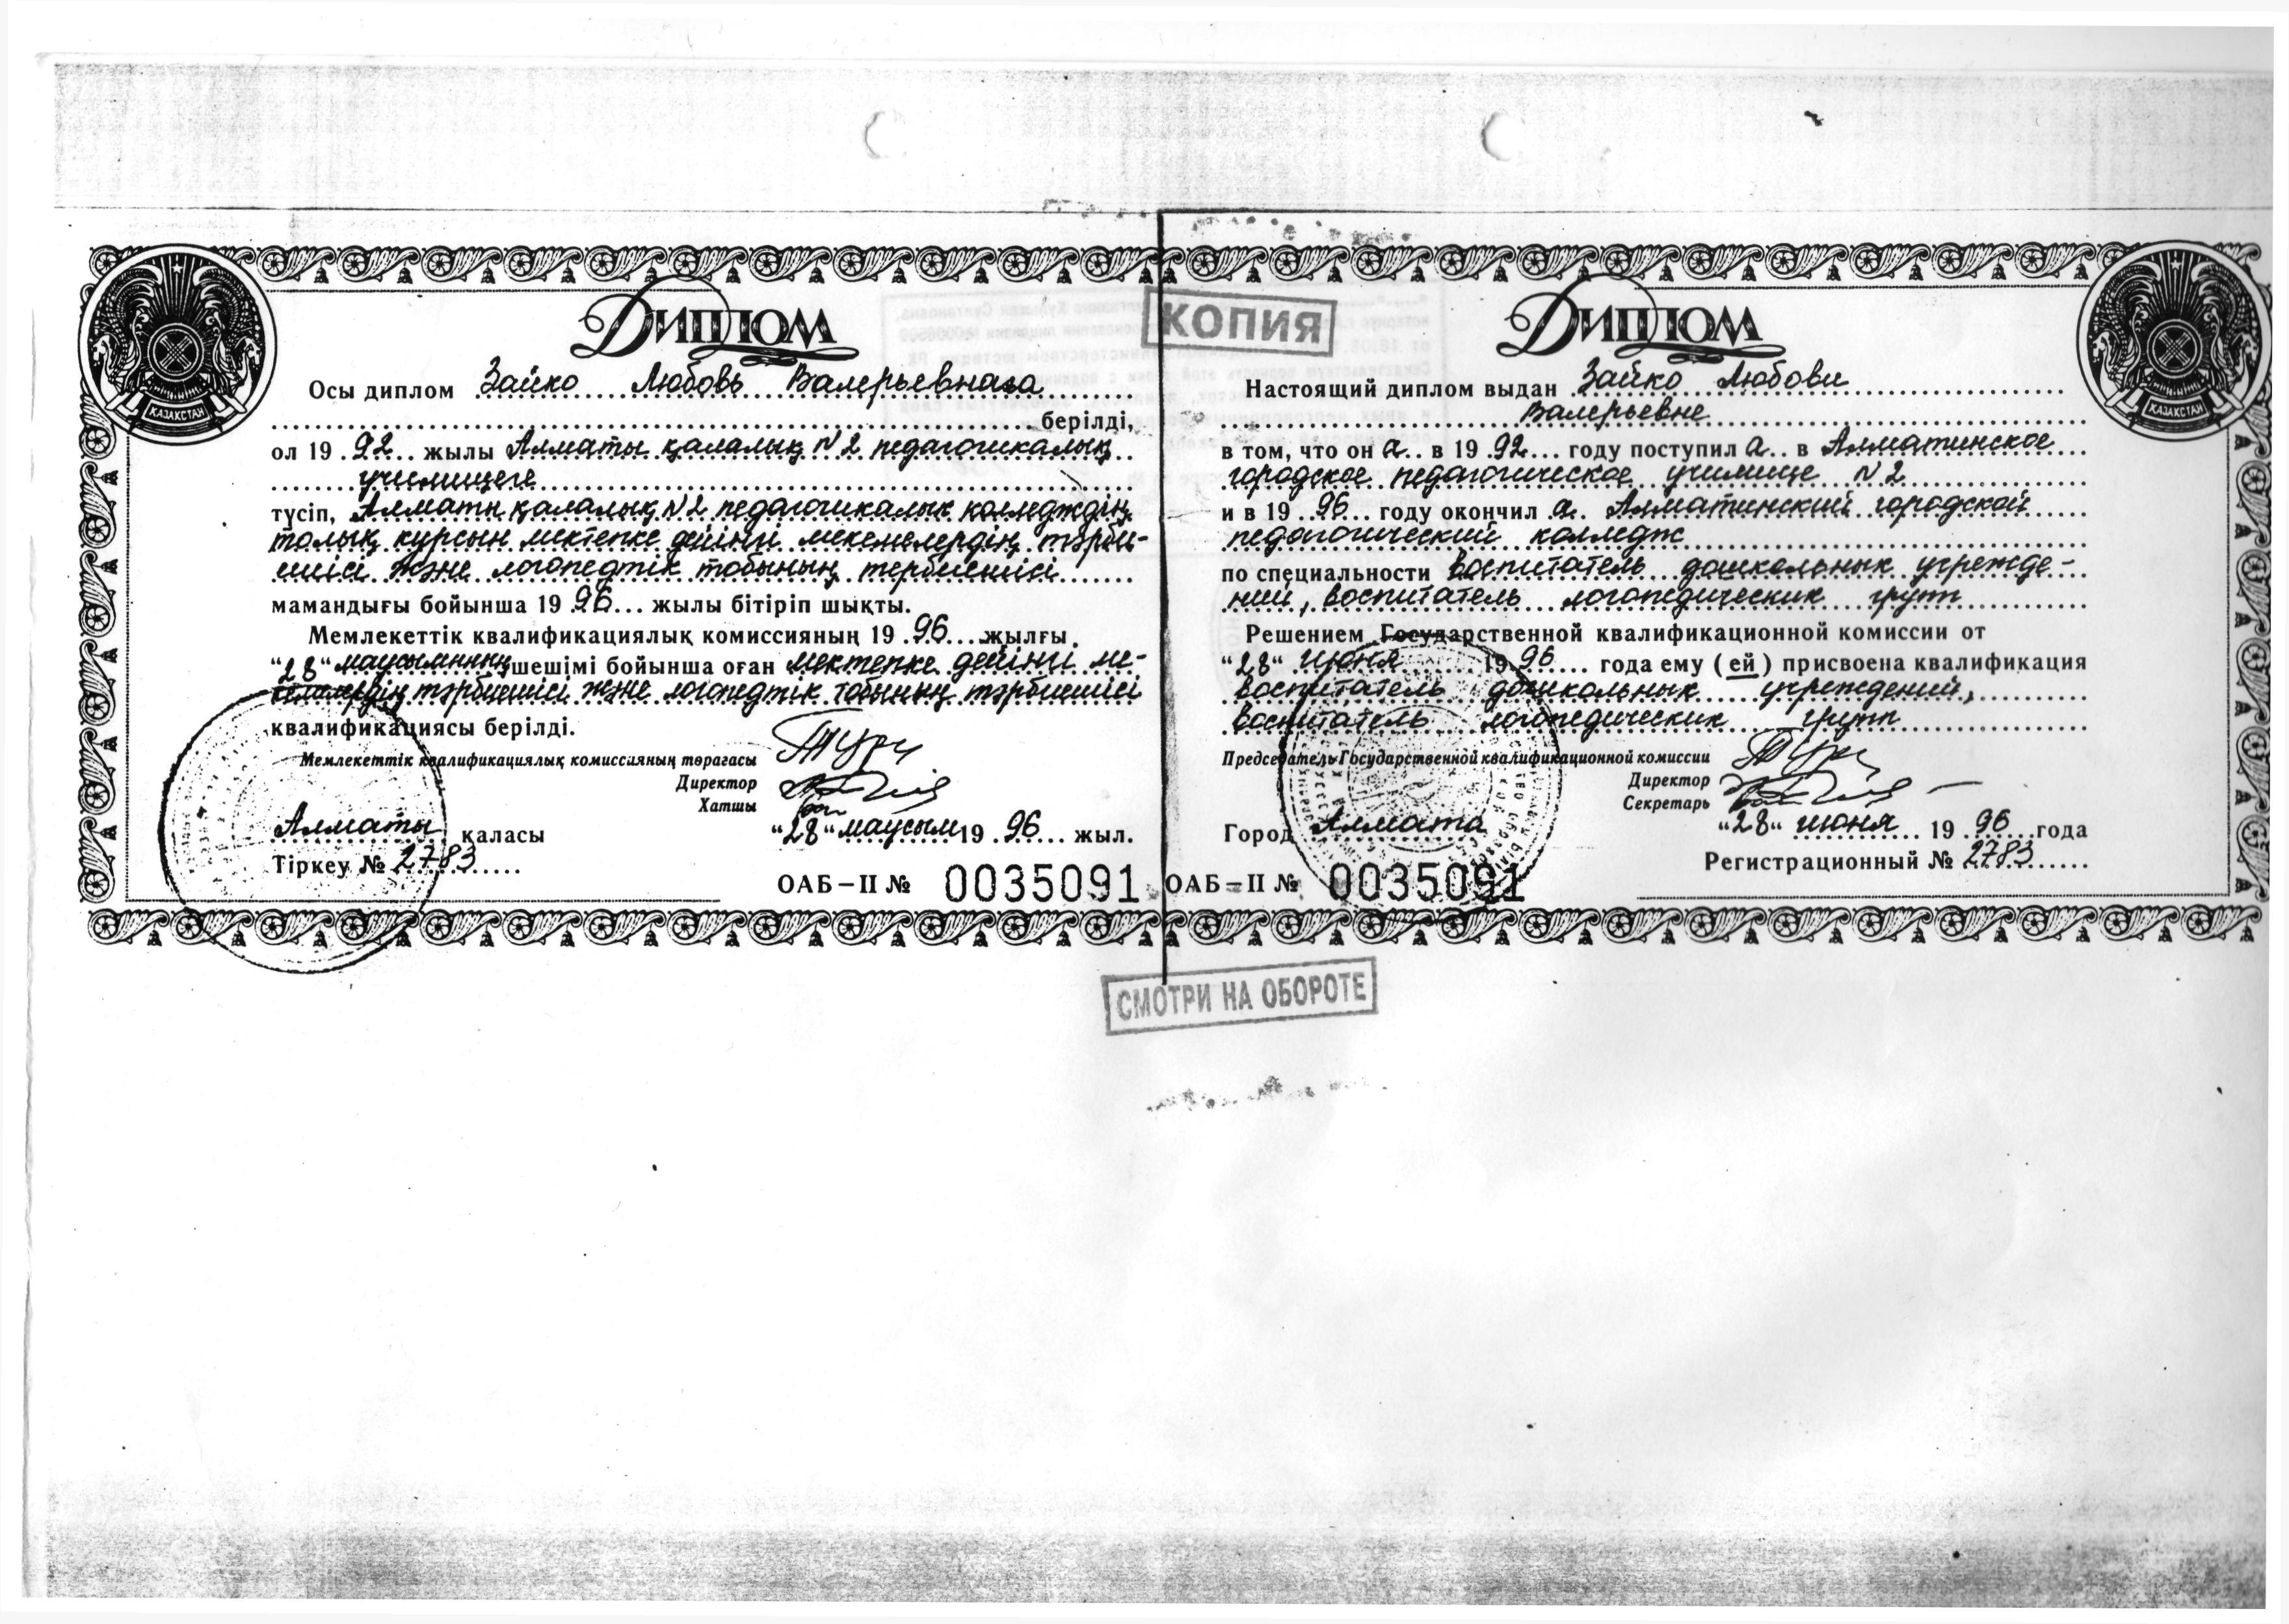 КОПИЯ
ДИПЛОМ
Осы диплом Зайко Любовь Валерьевнаға
берілді,
ол 1992 жылы Алматы қалалық N2 педагогикалық
училищеге
түсіп, Алматы қалалық N2 педагогикалық колледждің
толық курсын мектепке дейінгі мекемелердің тәрби-
ешісі және логопедтік тобының тербиешісі
мамандығы бойынша 1996 жылы бітіріп шықты.
Мемлекеттік квалификациялық комиссияның 1996 жылғы
"28" маусымның шешімі бойынша оған мектепке дейінгі ме-
кемелердің тәрбиешісі және логопедтік тобының тәрбиешісі
квалификациясы берілді.
Мемлекеттік квалификациялық комиссияның төрағасы
Директор
Хатшы
Алматы қаласы "28" маусым 1996 жыл.
Тіркеу № 2783
ОАБ-II № 0035091
КАЗАКСТАН
ДИПЛОМ
Настоящий диплом выдан Зайко Любови
Валерьевне
в том, что он а в 1992 году поступил а в Алматинское
городское педагогическое училище N2
и в 1996 году окончил а Алматинский городской
педагогический колледж
по специальности воспитатель дошкольных учрежде-
ний, воспитатель логопедических групп
Решением Государственной квалификационной комиссии от
"28" июня 1996 года ему (ей) присвоена квалификация
воспитатель дошкольных учреждений,
воспитатель логопедических групп
Председатель Государственной квалификационной комиссии
Директор
Секретарь
Город Алмата "28" июня 1996 года
Регистрационный № 2783
ОАБ-II № 0035091
КАЗАКСТАН
СМОТРИ НА ОБОРОТЕ